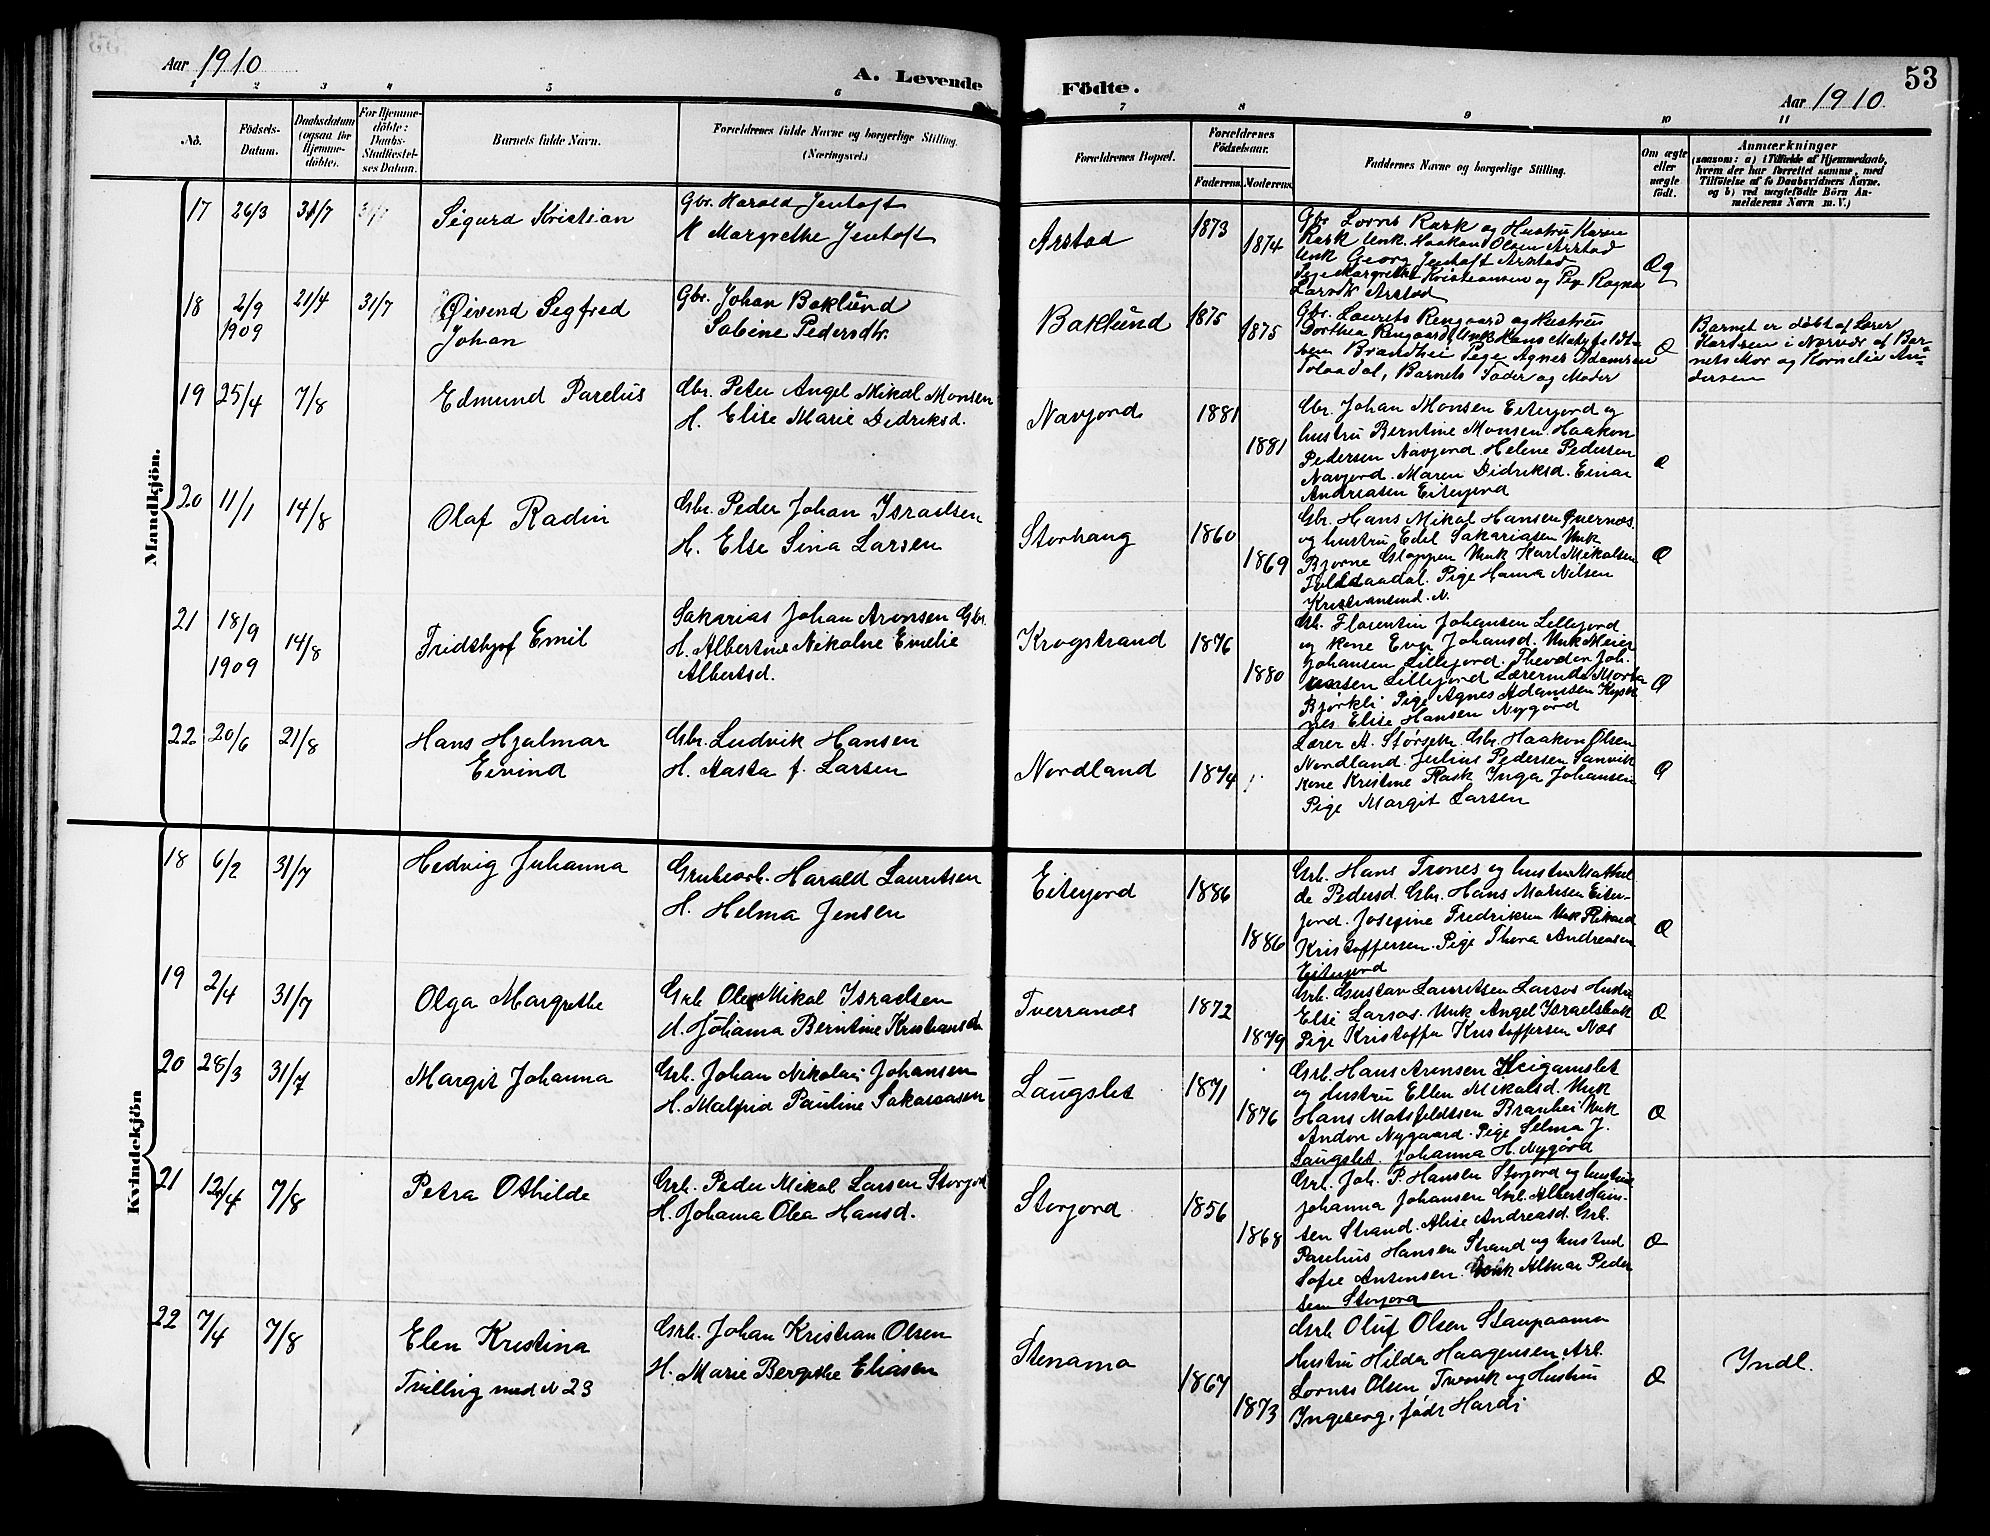 Aar 1910
A. Levende
Födte.
53
Aar 1910
1 2 3 4 5 6 7 8 9 10 11
No.
Födsels-
Datum.
Daabsdatum
(ogsaa for
Hjemme-
döbte).
For Hjemme-
döbte:
Daabs-
Stadfæstel-
ses Datum.
Barnets fulde Navn.
Forældrenes fulde Navne og borgerlige Stilling.
(Næringsvei.)
Forældrenes Bopæl.
Forældrenes
Födselsaar.
Faderens. Moderens.
Faddernes Navne og borgerlige Stilling.
Om ægte
eller
uægte
födt.
Anmærkninger
(saasom: a) i Tilfælde af Hjemmedaab,
hvem der har forrettet samme, med
Tilföielse af to Daabsvidners Navne,
og b) ved uægtefödte Börn An-
melderens Navn m. V.)
Mandkjön.
17 26/3 31/7
Sigurd Kristian
Gbr. Harald Jentoft
Margrethe Jentoft
Arstad
1873
1874
Gbr Lornts Rask og Hustru Karen
Rask Unk. Haakon Olsen Arstad
Unk Georg Jentoft Arstad
Pige Margrethe Kristiansen og Pige Ragna
Larsdtr Arstad
Æg
18 2/9
1909
21/4 31/7
Øivend Segfred
Johan
Gbr. Johan Baklund
Sabine Pedersdtr.
Baklund
1875
1875
Gbr. Laurets Rengaard og Hustru
Dorthea Rengaard, Unk Hans Matsfeldt-
sen Brandhei Pige Agnes Adamsen
Tolaadal, Barnets Fader og Moder
Æ
Barnet er døbt af Lærer
Karlsen i Norvær af Bar-
nets Mor og Kornelie An-
dersen
19 25/4 7/8
Edmund Parelius
Gbr. Peter Angel Mikal Monsen
H. Elise Marie Dedriksd.
Navjord
1881
1881
Gbr. Johan Monsen Eiterjord og
hustru Berntine Monsen. Haakon
Pedersen Navjord. Helene Pedersen
Navjord. Maren Didriksd. Einar
Andreasen Eiterjord
Æ
20 11/1 14/8
Olaf Radin
Gbr. Peder Johan Israelsen
H. Else Sina Larsen
Storhaug
1860
1869
Gbr. Hans Mikal Hansen
og hustru Edel Sakariasen Unk
Bjarne Gloppen Unk Karl Mikalsen
Pige Hanna Nilsen
Kristiansund. N.
Æ
21 18/9
1909
14/8
Fridthjof Emil
Sakarias Johan Aronsen Gbr.
H. Albertine Nikoline Emelie
Albertsd.
Krogstrand
1876
1880
Gbr. Florentin Johansen Lillejord
og kone Eva Johansd. Unk Meier
Johansen Lillejord. Theodor Joh.
ansen Lillejord Lærerinde Marta
Bjørkli Pige Agnes Adamsen
nes Elise Hansen Nygård
Æ
22 20/6 21/8
Hans Hjalmar
Eivind
Gbr. Ludvik Hansen
H. Aasta f. Larsen
Nordland
1874
Lærer A. Størsetr. Gbr. Haakon Olsen
Nordland Julius Pedersen Sanvik
Kone Kristine Rask Inga Johansen
Pige Margit Larsen
Æ
Kvindekjön
18 6/2 31/7
Hedvig Juhanna
Grubearb. Harald Lauritsen
H. Helma Jensen
Eiterjord
1886
1886
Grb. Hans Trones og hustru Mathil
de Pedersd. Gbr. Hans Mansen Eiter-
jord. Josefine Fredriksen Unk Rikard
Kristoffersen. Pige Thora Andreasen
Eiterjord
Æ
19 2/4 31/7
Olga Margrethe
Grb Ole Mikal Israelsen
H. Johanna Berntine Kristiansd
Tverranes
1872
1879
Grb. Gustav Lauritsen Larsos Hustru
Else Larsos. Unk Angel
Pige Kristoffa Kristoffersen Næs
Æ
20 28/3 31/7
Margit Johanna
Grb. Johan Nikolai Johansen
H. Malfrid Pauline Sakariasen
Laugslet
1871
1876
Grb. Hans Arensen Heigamslet
og hustru Ellen Mikalsd. Unk
Hans Matsfeldtsen Branhei Unk
Andor Nygaard. Pige Selma J.
Laugslet Johanna H. Nygård
Æ
21 12/4 7/8
Petra Othilde
Grb. Peder Mikal Larsen Storjord
H. Johanna Olea Hansd.
Storjord
1856
1868
Grb. Joh. P. Hansen Storjord og hustru
Johanna Johansen Grb. Albert Han-
sen Strand. Alise Andreasd. Grb.
Parelius Hansen Strand og hustru
Sofie Antonsen. Unk Almar Peder
sen Storjord
Æ
22 7/4 7/8
Elen Kristina
Tvilling med N 23
Grb. Johan Kristian Olsen
H. Marie Bergethe Eliasen
Stenamo
1867
1873
Grb Oluf Olsen Staupaamo
Hustru Hilda Haagensen Arb.
Lornts Olsen Tvervik og Hustru
Ingeborg, født Hardi
Æ
Indl.